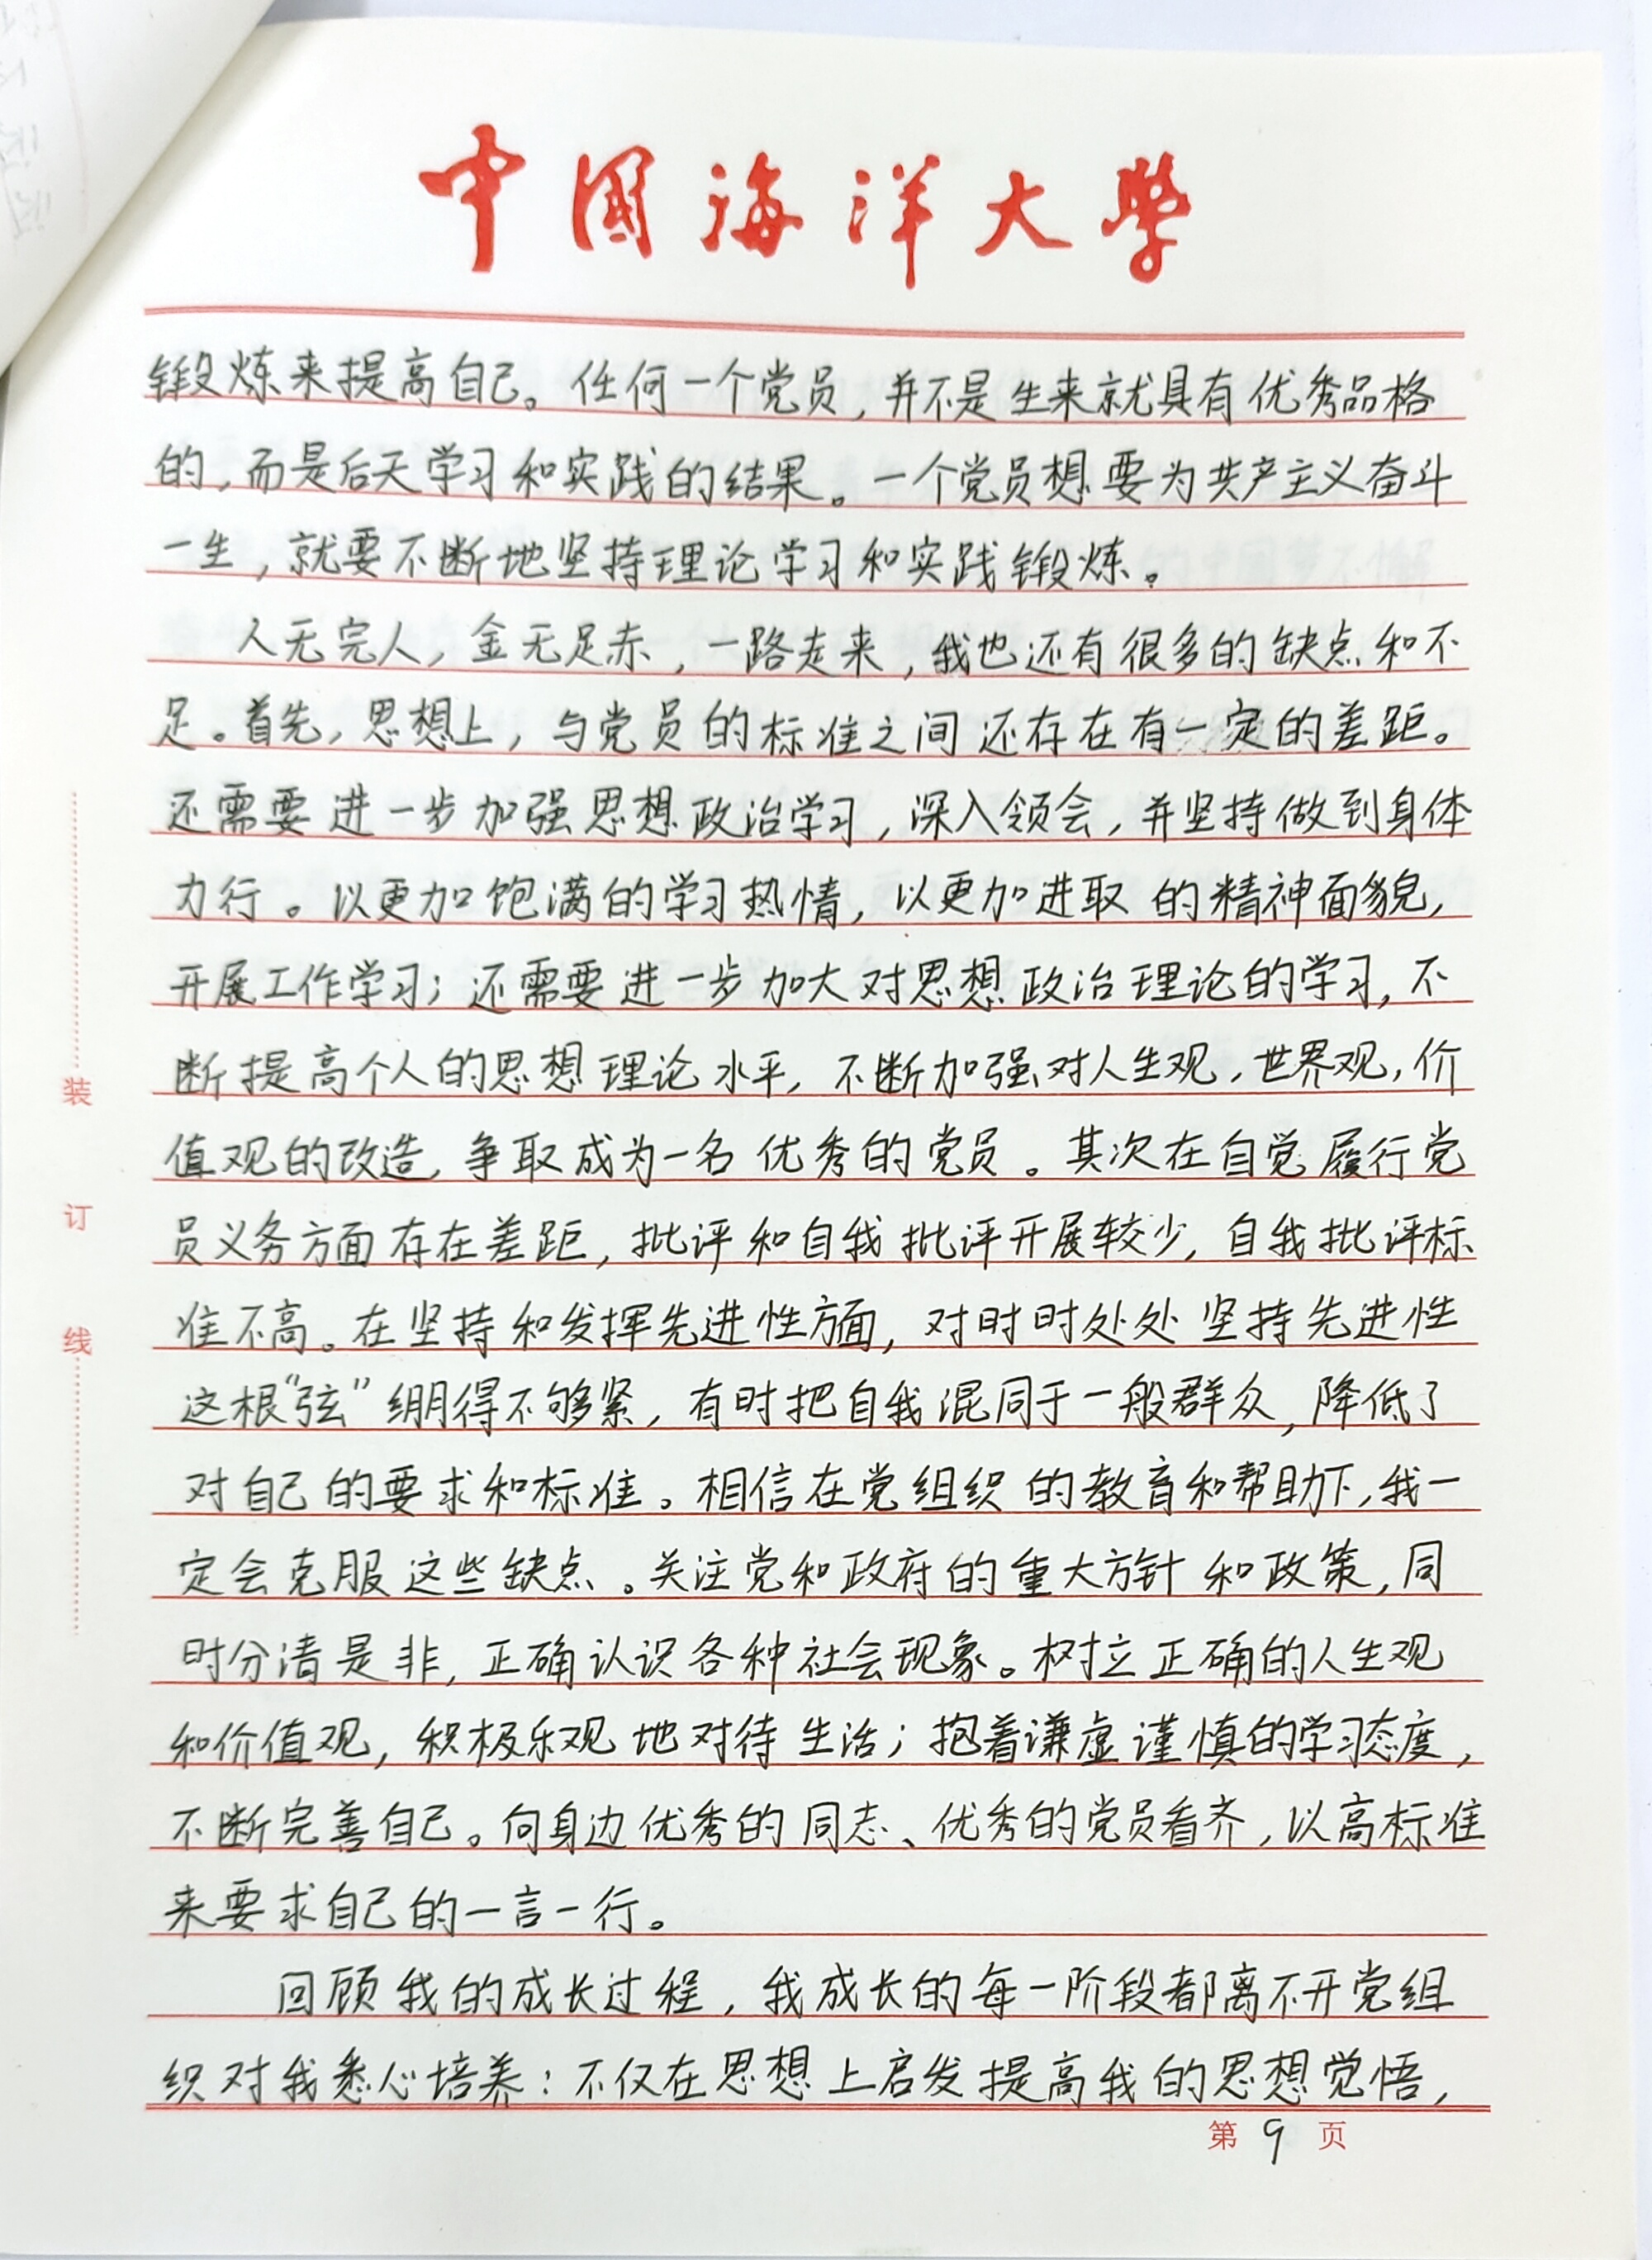 中国海洋大学
锻炼来提高自己。任何一个党员，并不是生来就具有优秀品格
的，而是后天学习和实践的结果。一个党员想要为共产主义奋斗
一生，就要不断地坚持理论学习和实践锻炼。
人无完人，金无足赤，一路走来，我也还有很多的缺点和不
足。首先，思想上，与党员的标准之间还存在有一定的差距。
还需要进一步加强思想政治学习，深入领会，并坚持做到身体
力行。以更加饱满的学习热情，以更加进取的精神面貌，
开展工作学习；还需要进一步加大对思想政治理论的学习，不
断提高个人的思想理论水平，不断加强对人生观，世界观，价
值观的改造，争取成为一名优秀的党员。其次在自觉履行党
员义务方面存在差距，批评和自我批评开展较少，自我批评标
准不高。在坚持和发挥先进性方面，对时时处处坚持先进性
这根“弦”绷得不够紧，有时把自我混同于一般群众，降低了
对自己的要求和标准。相信在党组织的教育和帮助下，我一
定会克服这些缺点。关注党和政府的重大方针和政策，同
时分清是非，正确认识各种社会现象。树立正确的人生观
和价值观，积极乐观地对待生活；抱着谦虚谨慎的学习态度，
不断完善自己。向身边优秀的同志、优秀的党员看齐，以高标准
来要求自己的一言一行。
回顾我的成长过程，我成长的每一阶段都离不开党组
织对我悉心培养：不仅在思想上启发提高我的思想觉悟，
第9页
装
订
线